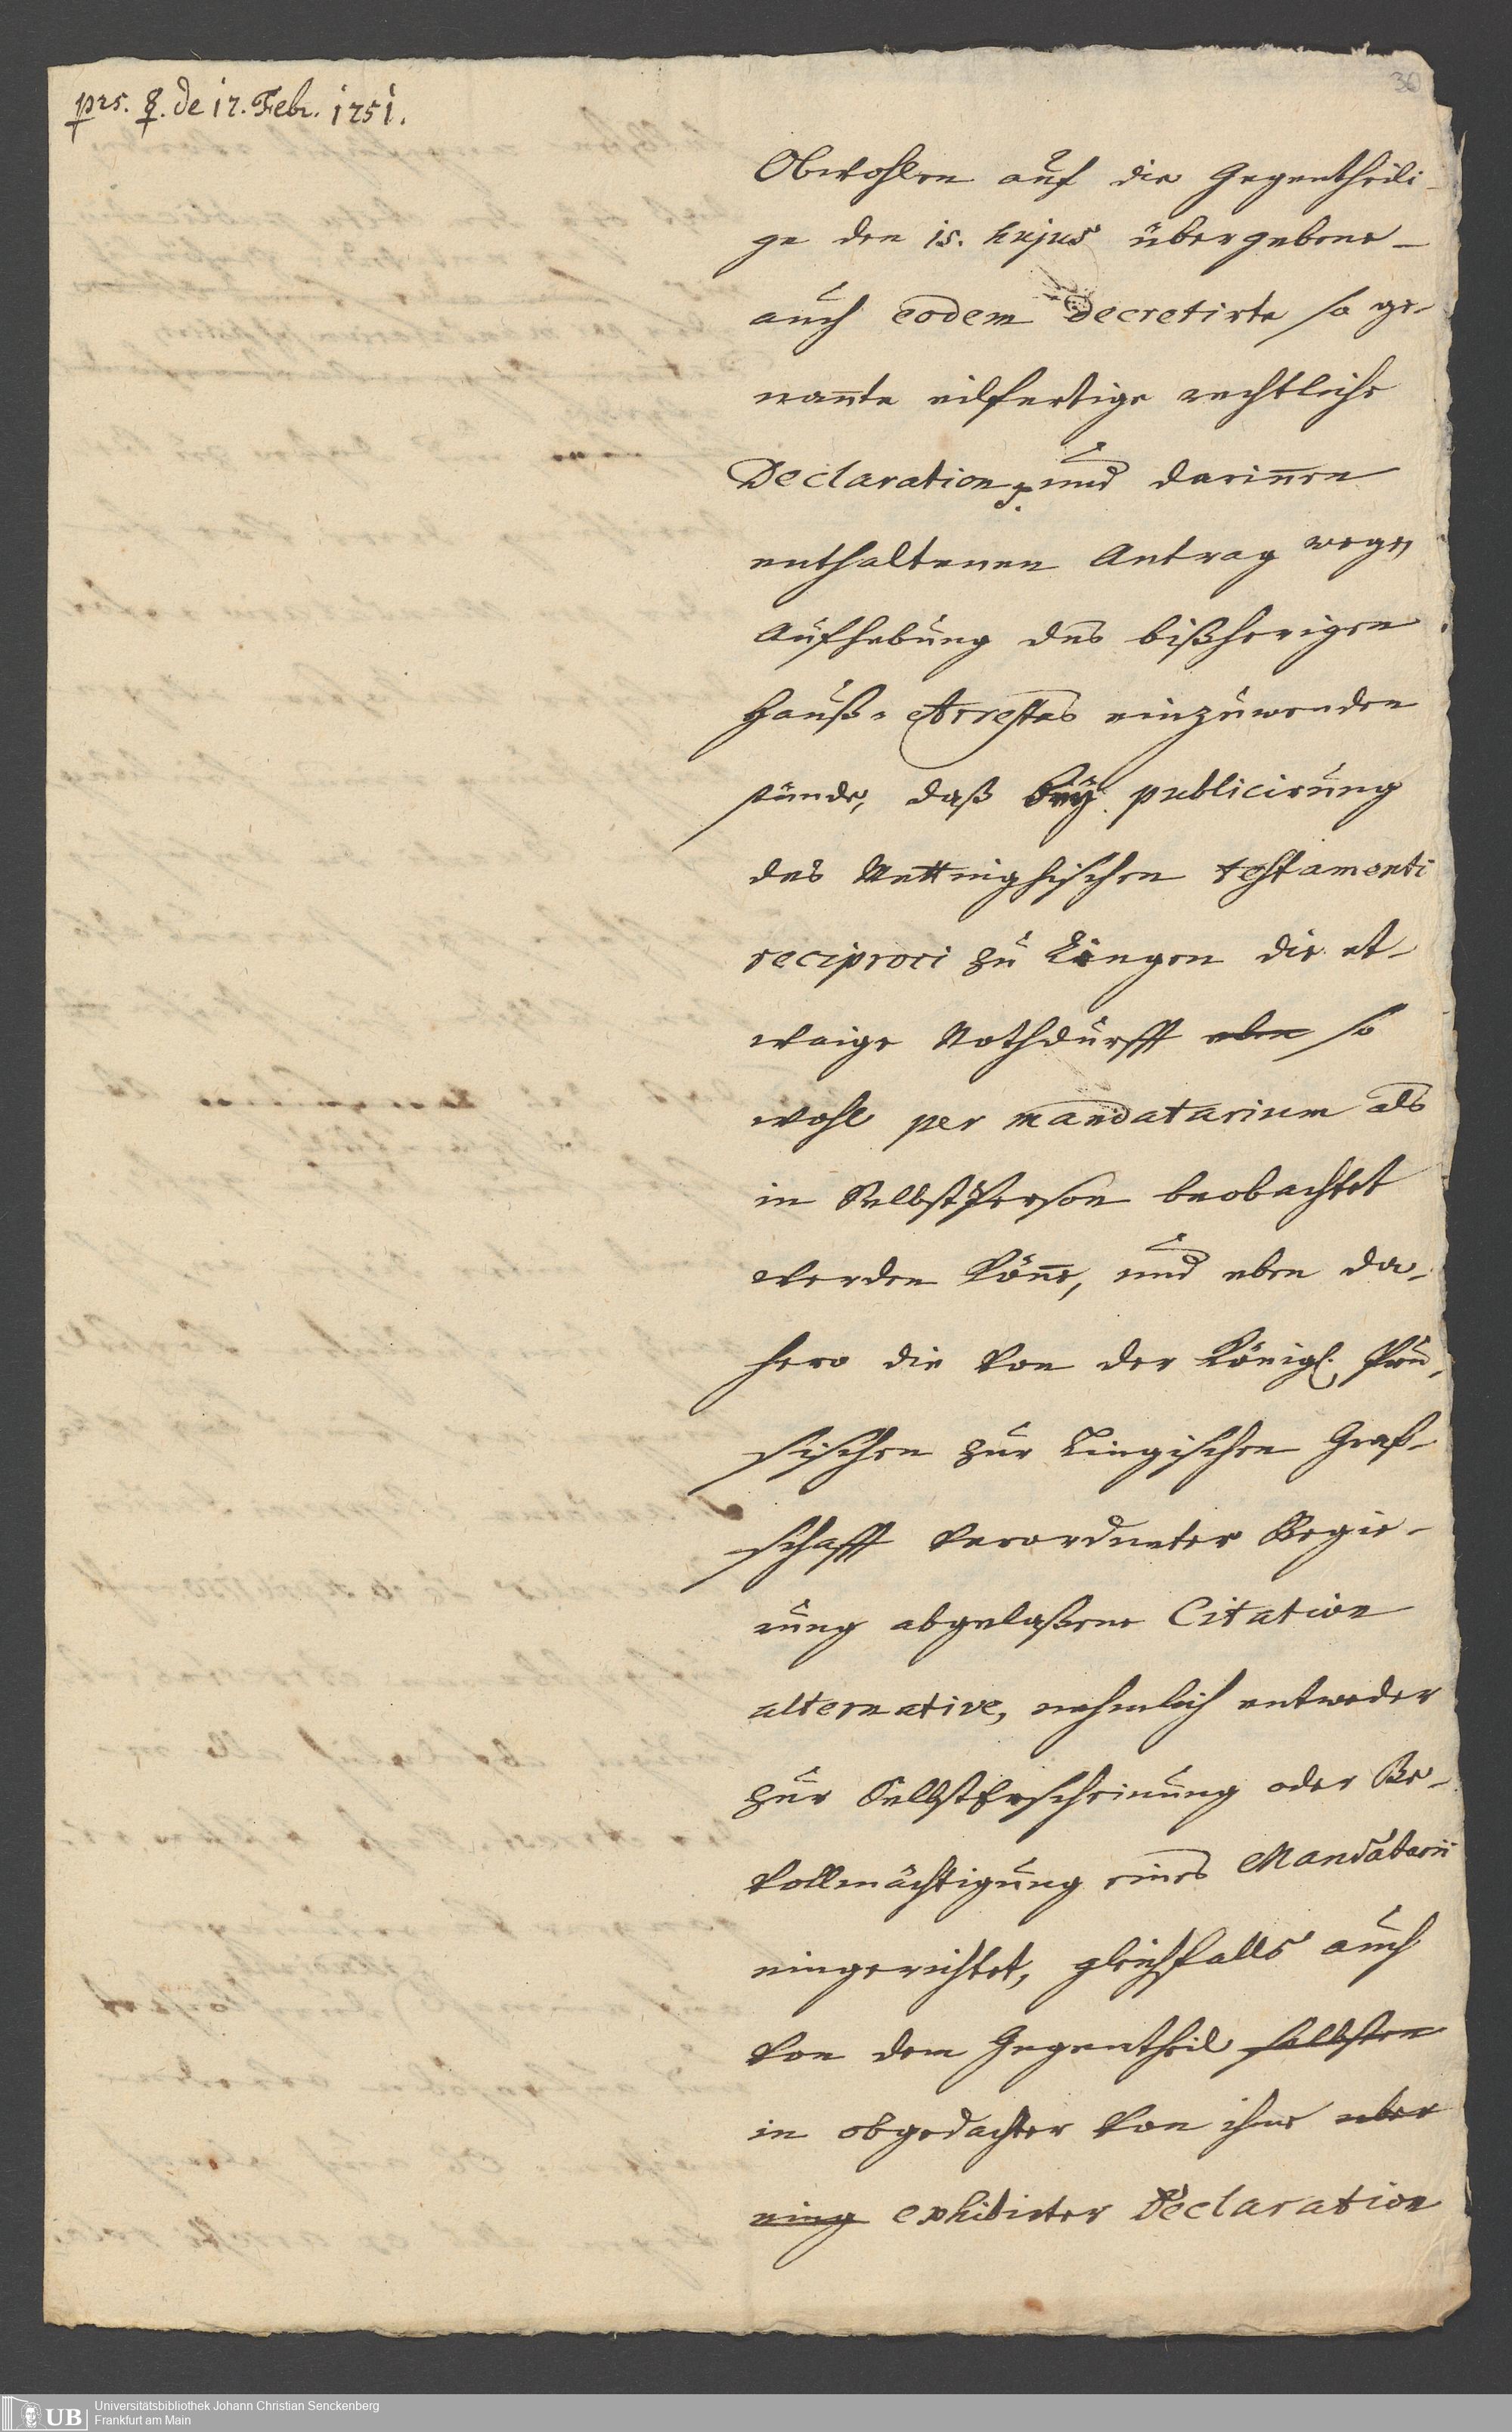 30
prs. 8. de 17. Febr. 1751.
Obwohlen auf die Gegentheili-
ge den 15. hujus übergebene-
auch eodem decretirte so ge-
nañte eilfertige rechtliche
Declaration p. und dariñen
enthaltenen Antrag wegen
Aufhebung des bißherigen
Hauß-Arrestes einzuwenden
stünde, daß bey publicirung
des testamenti
reciproci zu Lingen die et-
waige Nothdurfft eben so
wohl per mandatarium als
in SelbstPerson beobachtet
werden köñe, und eben da-
hero die von der Königl. Preu-
sischen zur Lingischen Graf-
schafft verordneter Regie-
rung abgelaßene Citation
alternative, nehmlich entweder
zur SelbstErscheinung oder Be-
vollmächtigung eines Mandatarii
eingerichtet, gleichfalls auch
von dem Gegentheil selbsten
in obgedachter von ihme
exhibirter Declaration
UB Universitätsbibliothek Johann Christian Senckenberg
Frankfurt am Main